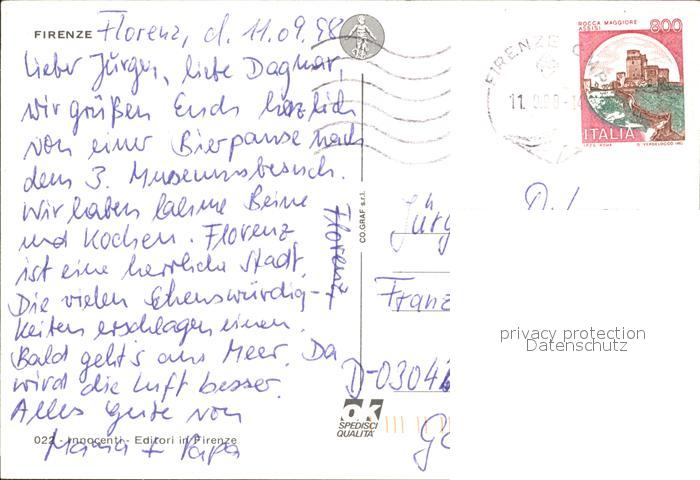 FIRENZE
Florenz, d. 11.09.98
Lieber Jürgen, liebe Dagmar,
wir grüßen Euch herzlich
von einer Bierpause nach
dem 3. Museumsbesuch.
Wir haben lahme Beine
und kochen. Florenz
ist eine herrliche Stadt.
Die vielen Sehenswürdig-
keiten erschlagen einen.
Bald geht's ans Meer. Da
wird die Luft besser.
Alles Gute von
Mama + Papa
Florenz
022 - Innocenti - Editori in Firenze
CO.GRAF s.r.l.
ROCCA MAGGIORE
ASSISI
800
ITALIA
FIRENZE
11.9.98
Jürg
Franz
D-0304
ok
SPEDISCI
QUALITA'
privacy protection
Datenschutz